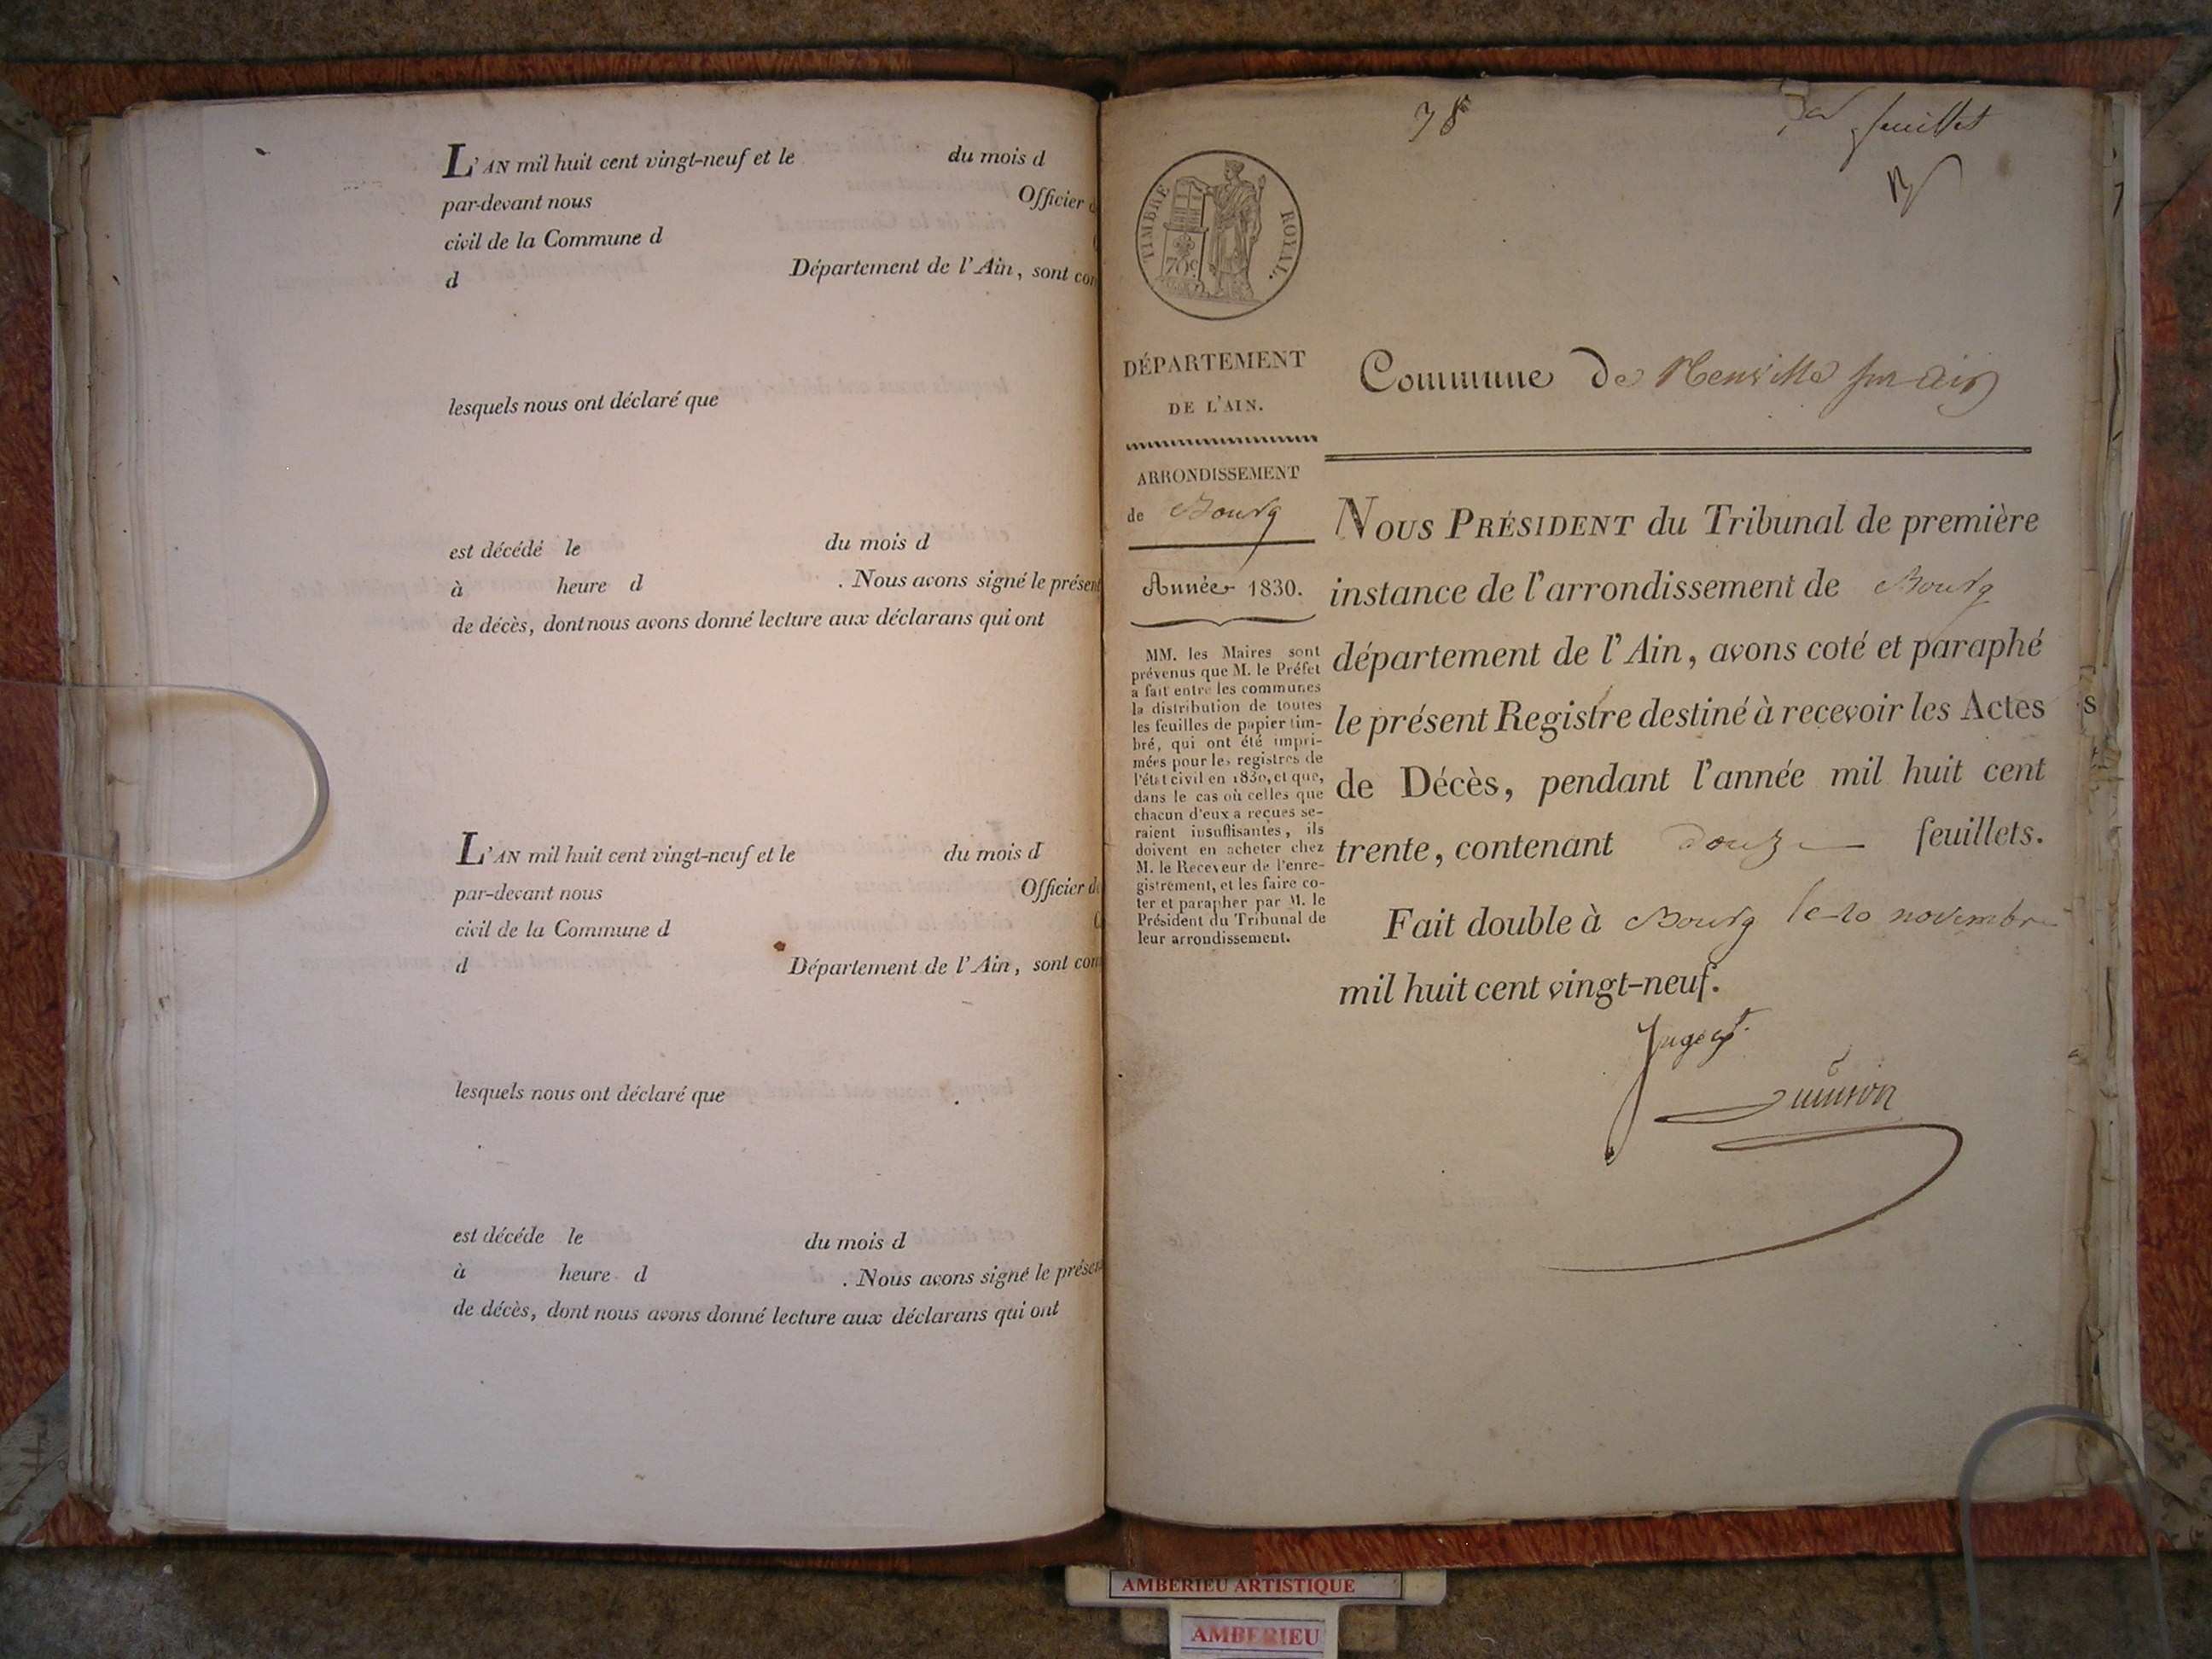 L'AN mil huit cent vingt-neuf et le du mois d
par-devant nous Officier d
civil de la Commune d
d Département de l'Ain, sont con
lesquels nous ont déclaré que
est décédé le du mois d
à heure d . Nous avons signé le présent
de décès, dont nous avons donné lecture aux déclarans qui ont
L'AN mil huit cent vingt-neuf et le du mois d
par-devant nous Officier de
civil de la Commune d
d Département de l'Ain, sont com
lesquels nous ont déclaré que
est décéde le du mois d
à heure d . Nous avons signé le présen
de décès, dont nous avons donné lecture aux déclarans qui ont
38
feuillet
TIMBRE ROYAL.
70c
DÉPARTEMENT
DE L'AIN.
ARRONDISSEMENT
de Bourg
Année 1830.
MM. les Maires sont
prévenus que M. le Préfet
a fait entre les communes
la distribution de toutes
les feuilles de papier tim-
bré, qui ont été impri-
mées pour les registres de
l'état civil en 1830, et que,
dans le cas où celles que
chacun d'eux a reçues se-
raient insuffisantes, ils
doivent en acheter chez
M. le Receveur de l'enre-
gistrement, et les faire co-
ter et parapher par M. le
Président du Tribunal de
leur arrondissement.
Commune de Neuville sur ain
NOUS PRÉSIDENT du Tribunal de première
instance de l'arrondissement de Bourg
département de l'Ain, avons coté et paraphé
le présent Registre destiné à recevoir les Actes
de Décès, pendant l'année mil huit cent
trente, contenant douze feuillets.
Fait double à Bourg le 20 novembre
mil huit cent vingt-neuf.
S
AMBERIEU ARTISTIQUE
AMBERIEU